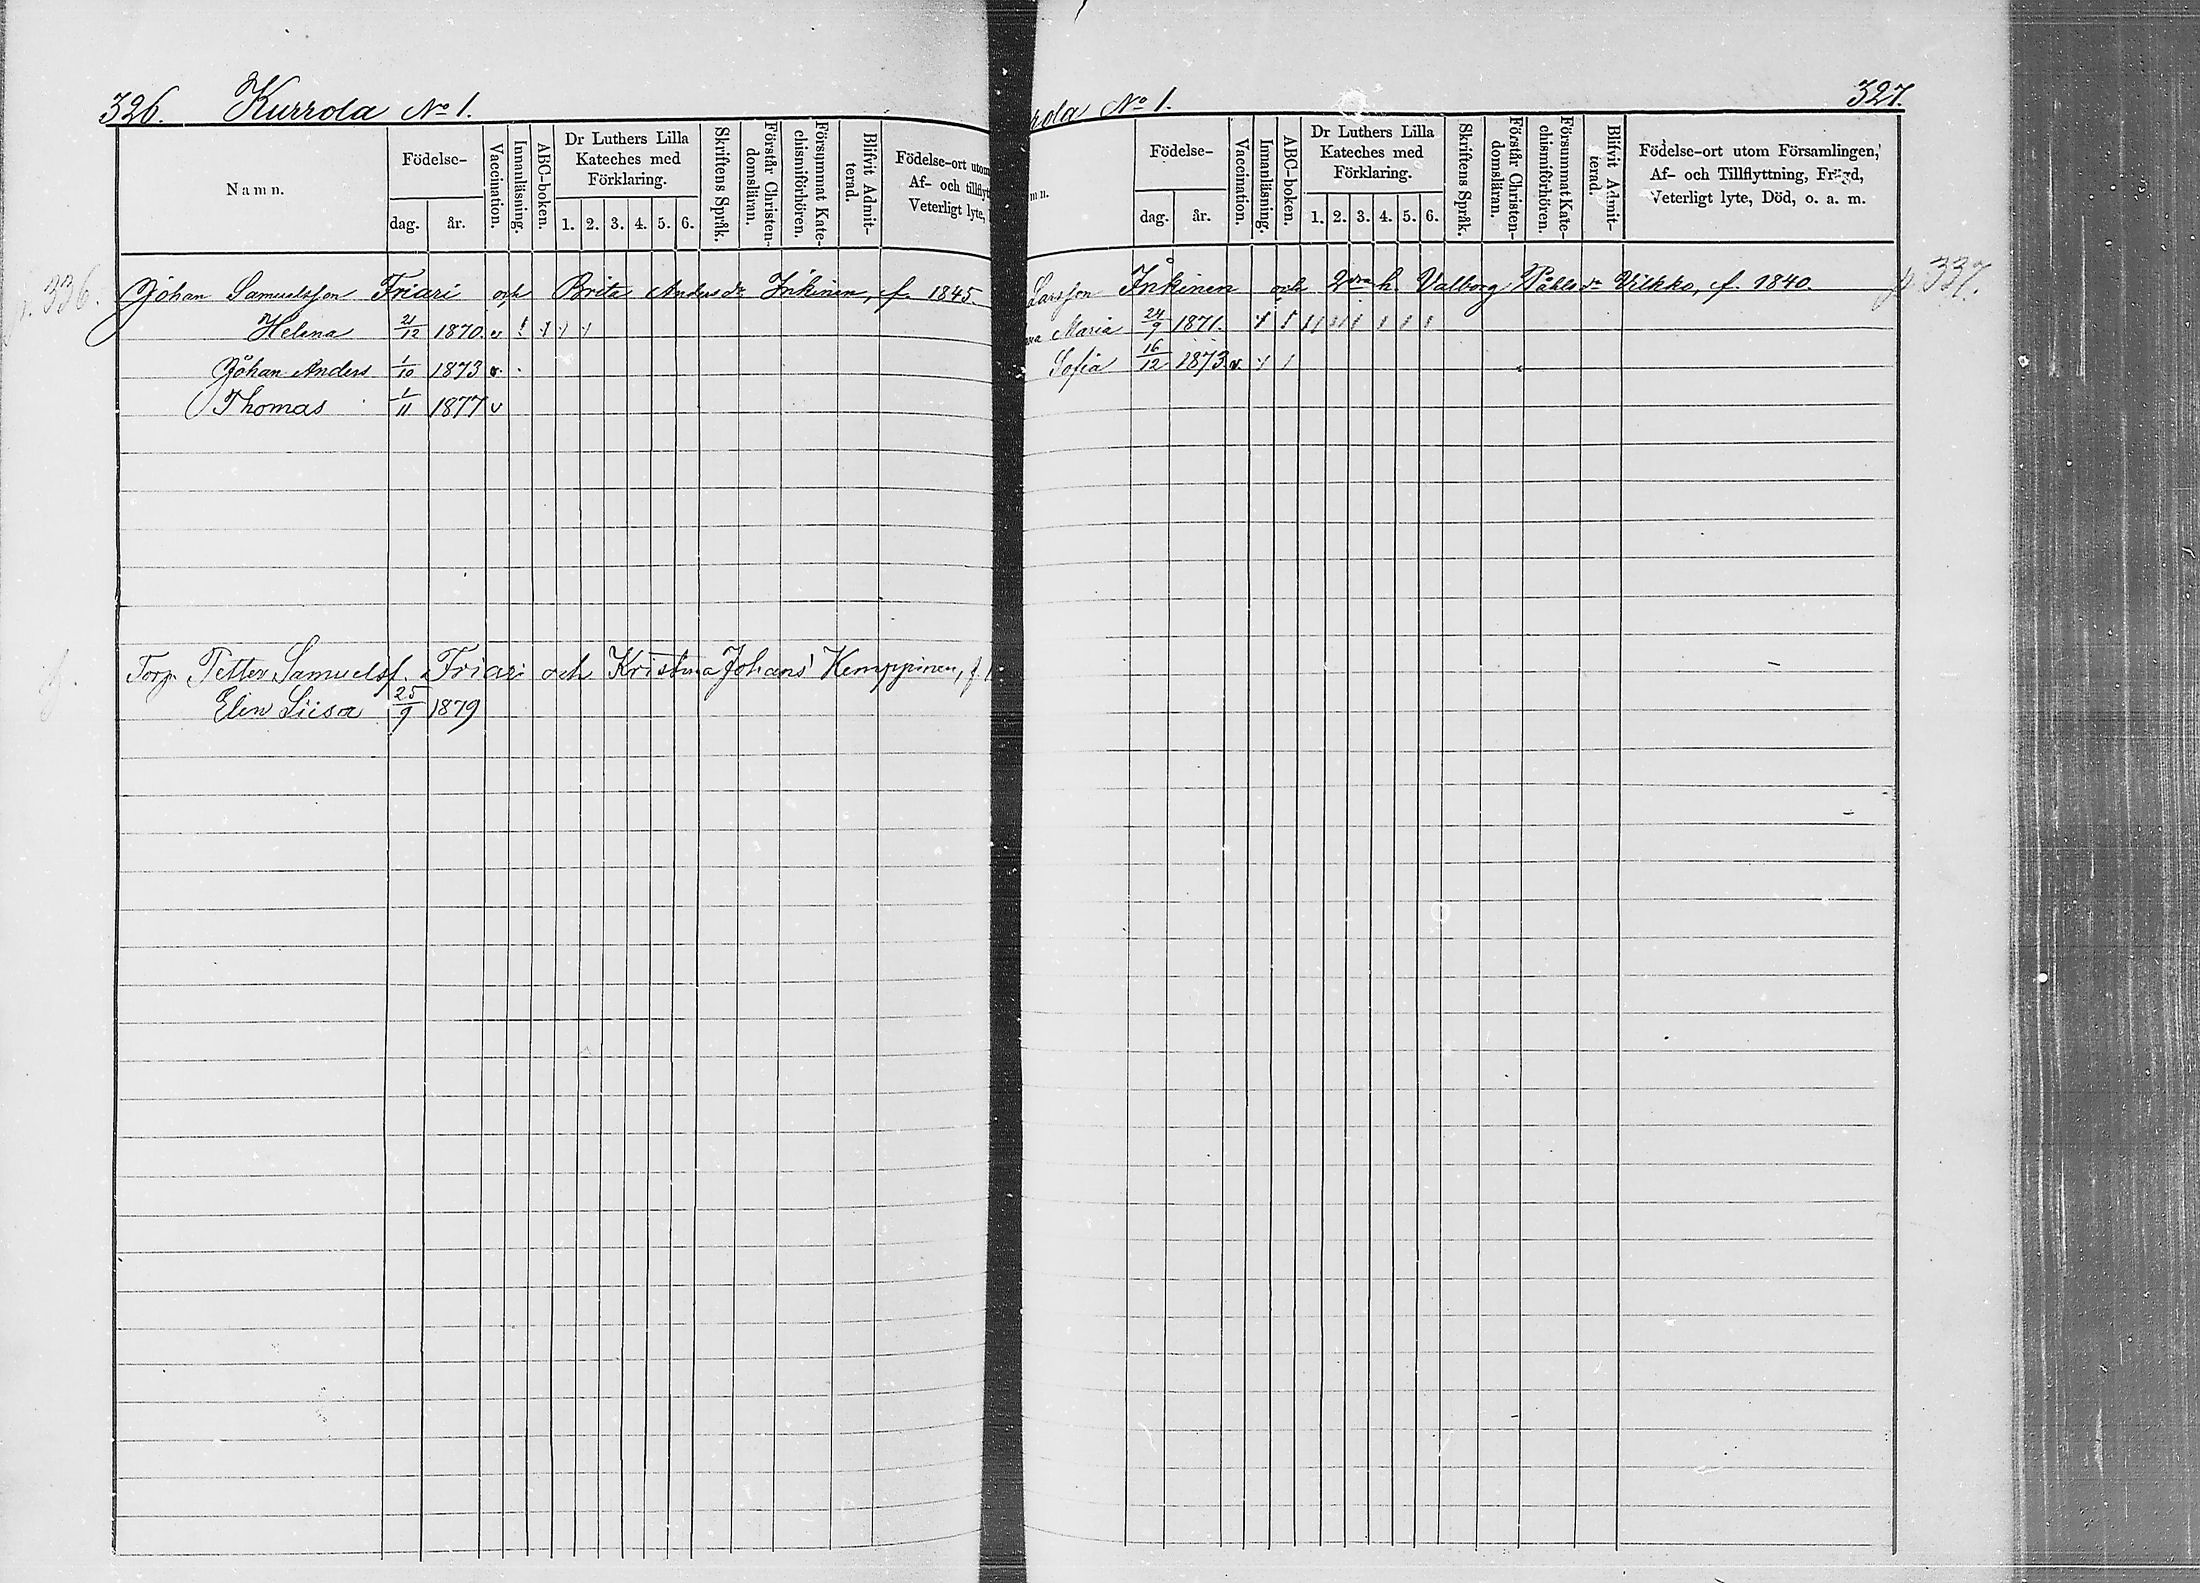 326. Kurrola No 1.
Namn.
Födelse-
dag. år.
Vaccination.
Innanläsning.
ABC-boken.
Dr Luthers Lilla
Kateches med
Förklaring.
1. 2. 3. 4. 5. 6.
Skriftens Språk.
Förstår Christen-
domsläran.
Försummat Kate-
chismiförhören.
Blifvit Admit-
terad.
Födelse-ort utom
Af- och tillflyt
Veterligt lyte,
p. 336.
Johan Samuelsson Friari och Brita Anders dr Inkinen, f. 1845
Helena 21/12 1870. v
Johan Anders 1/10 1873 v
Thomas 1/11 1877 v
Torp. Petter Samuelss. Friari och Kristina Johans' Kemppinen, f.
Elin Liisa 25/9 1879
rola No 1. 327.
mn.
Födelse-
dag. år.
Vaccination.
Innanläsning.
ABC-boken.
Dr Luthers Lilla
Kateches med
Förklaring.
1. 2. 3. 4. 5. 6.
Skriftens Språk.
Förstår Christen-
domsläran.
Försummat Kate-
chismiförhören.
Blifvit Admit-
terad.
Födelse-ort utom Församlingen,
Af- och Tillflyttning, Frägd,
Veterligt lyte, Död, o. a. m.
Larsson Inkinen och 2dra h. Valborg Påhls dr Vilkko, f. 1840. p 337.
na Maria 24/9 1871.
Sofia 16/12 1873 v.